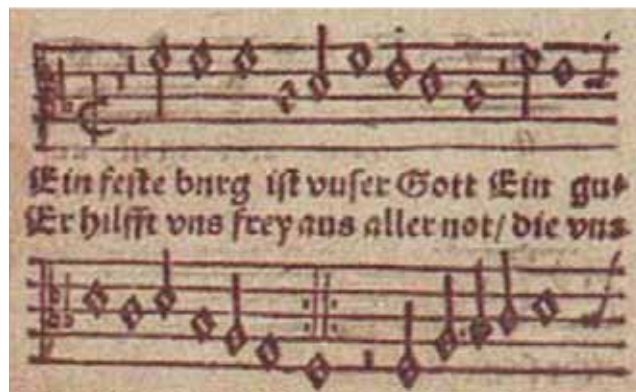 Ein feste burg ist vnser Gott Ein gu⸗
Er hilfft vns frey aus aller not/ die vns